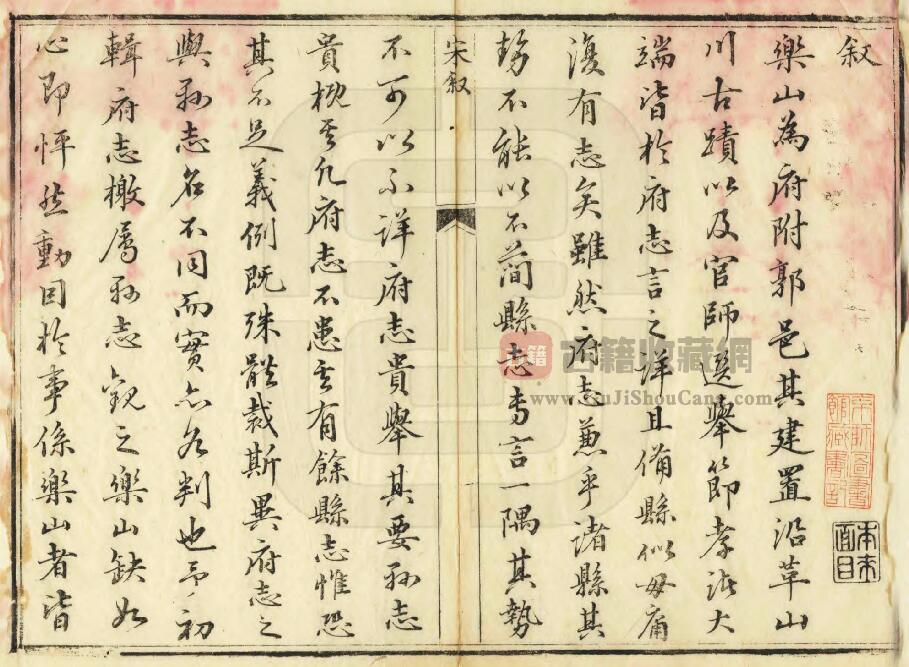 叙
樂山為府附郭邑其建置沿革山
川古蹟以及官師選舉節孝諸大
端皆於府志言之詳且備縣似毋庸
復有志矣雖然府志兼乎諸縣其
勢不能以不簡縣志專言一隅其勢
宋叙
不可以不詳府志貴舉其要縣志
貴概其凡府志不患其有餘縣志惟恐
其不足義例既殊體裁斯異府志之
與縣志名不同而實亦各判也予初
輯府志檄屬縣志觀之樂山缺如
心即怦然動因於事係樂山者皆
古籍
古籍收藏網
www.GuJiShouCang.com
本來
面目